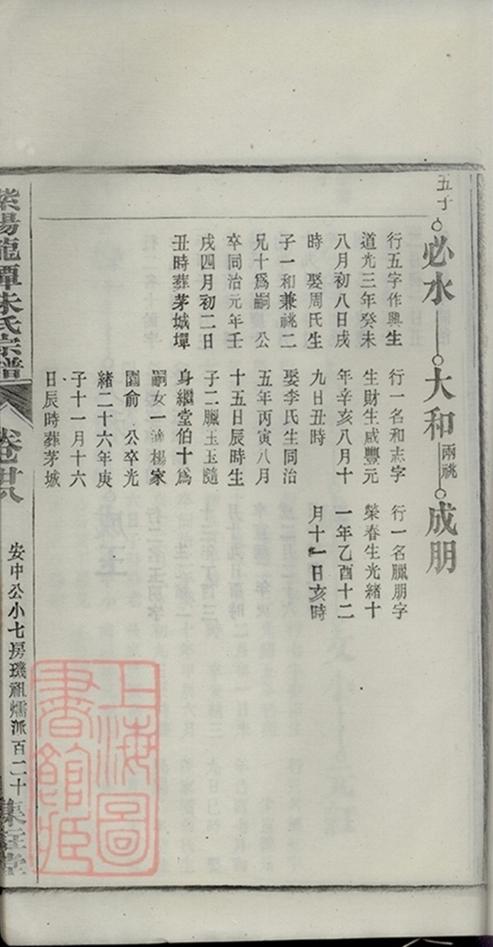 五子
必水
大和 兩祧
成朋
行五字作興生
道光三年癸未
八月初八日戌
時 娶周氏生
子一和兼祧二
兄十爲嗣 公
卒同治元年壬
戌四月初二日
丑時葬茅城墠
行一名和志字
生財生咸豐元
年辛亥八月十
九日丑時
娶李氏生同治
五年丙寅八月
十五日辰時生
子二臘玉玉隨
身繼堂伯十爲
嗣女一適楊家
園俞 公卒光
緒二十六年庚
子十一月十六
日辰時葬茅城
行一名臘朋字
榮春生光緒十
一年乙酉十二
月十一日亥時
紫陽龍潭朱氏宗譜
卷廿八
安中公小七房璣祖燸派百二十
上海圖書館